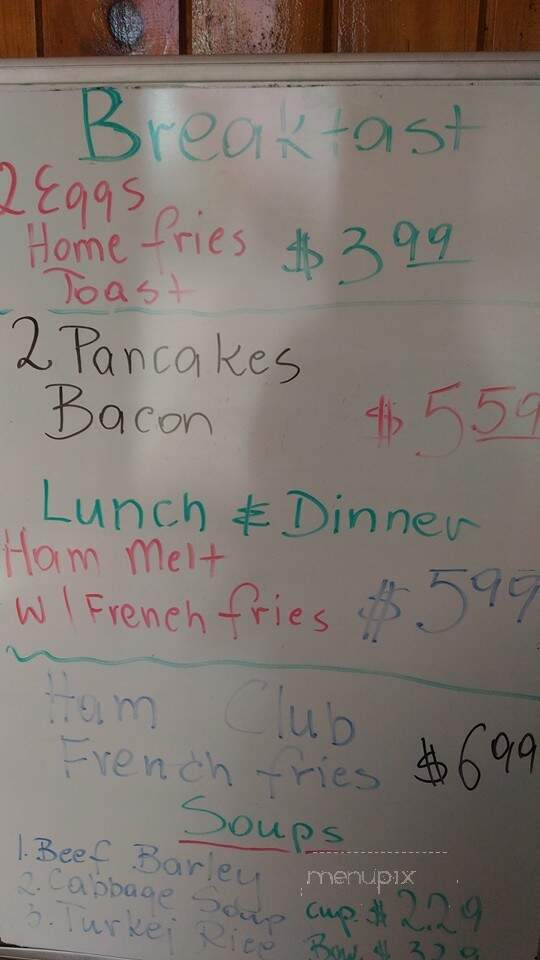 Breakfast
2 Eggs
Home fries $3.99
Toast
2 Pancakes
Bacon $5.59
Lunch & Dinner
Ham Melt
W/French fries $5.99
Ham Club
French fries $6.99
Soups
1. Beef Barley
menupix
2. Cabbage Soup cup. $2.29
3. Turkey Rice Bow. $3.29